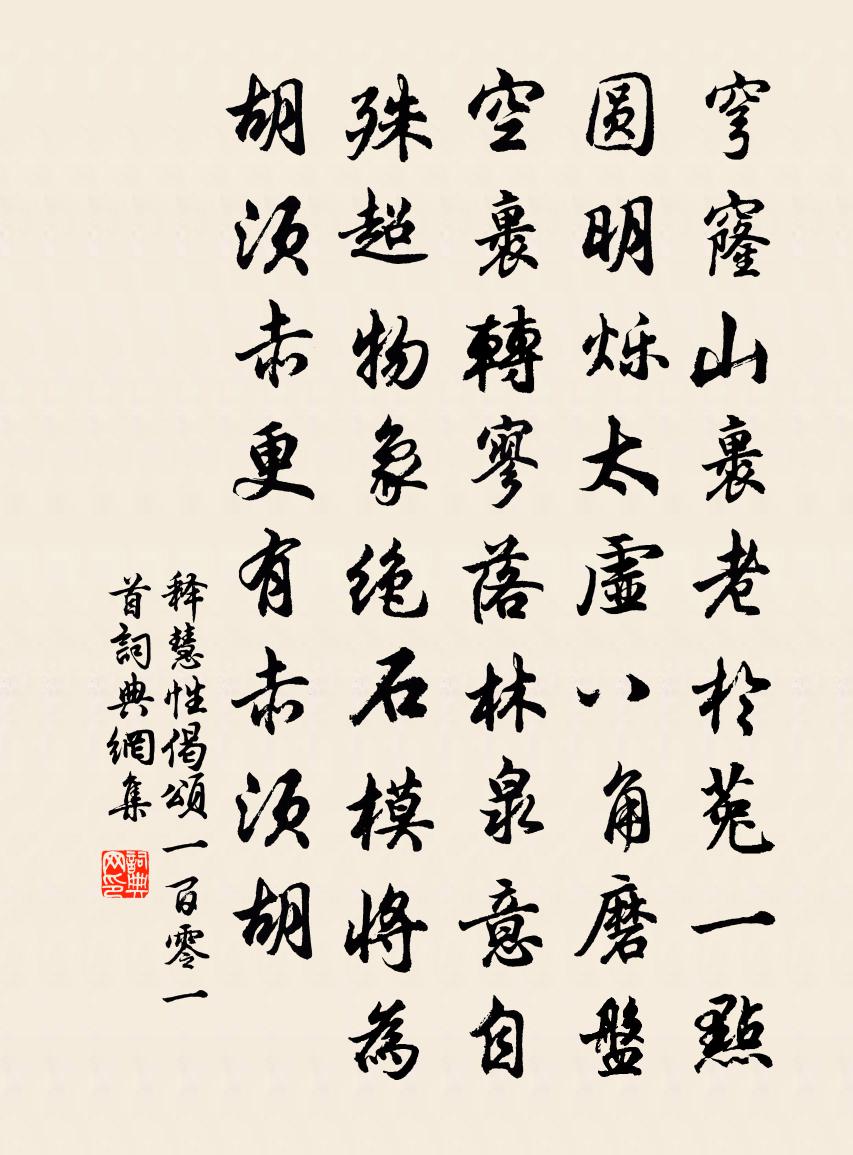 穹窿山裏老於菟一點
圆明烁太虚八角磨盤
空裏轉寥落林泉意自
殊超物象绝石模將為
胡须赤更有赤须胡
释慧性偈頌一百零一
首詞典網集
詞典网印